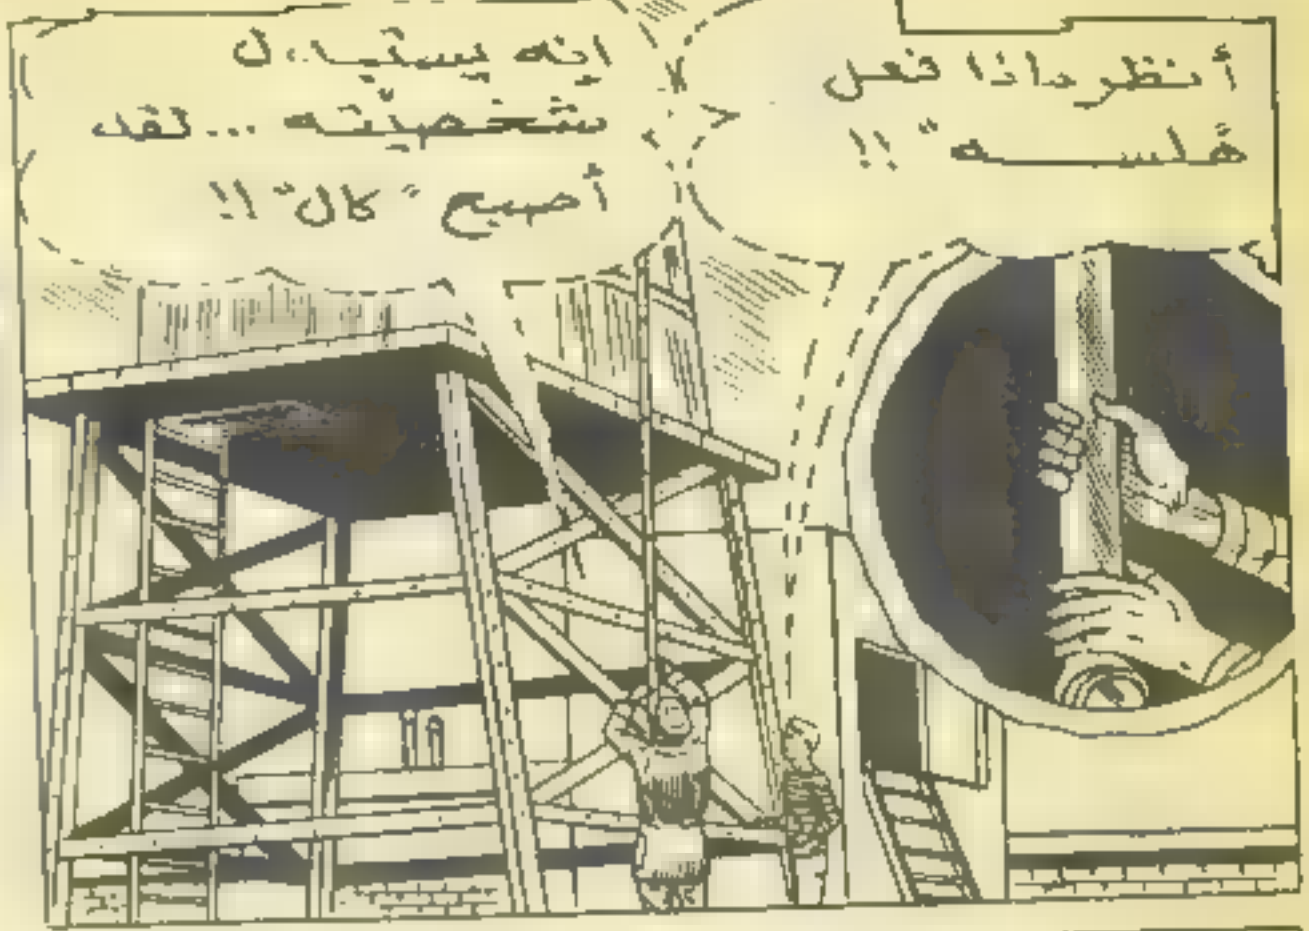 أنظر ماذا فعل
!!
انه يستبدل
شخصيّته ... لقد
أصبح "كال" !!